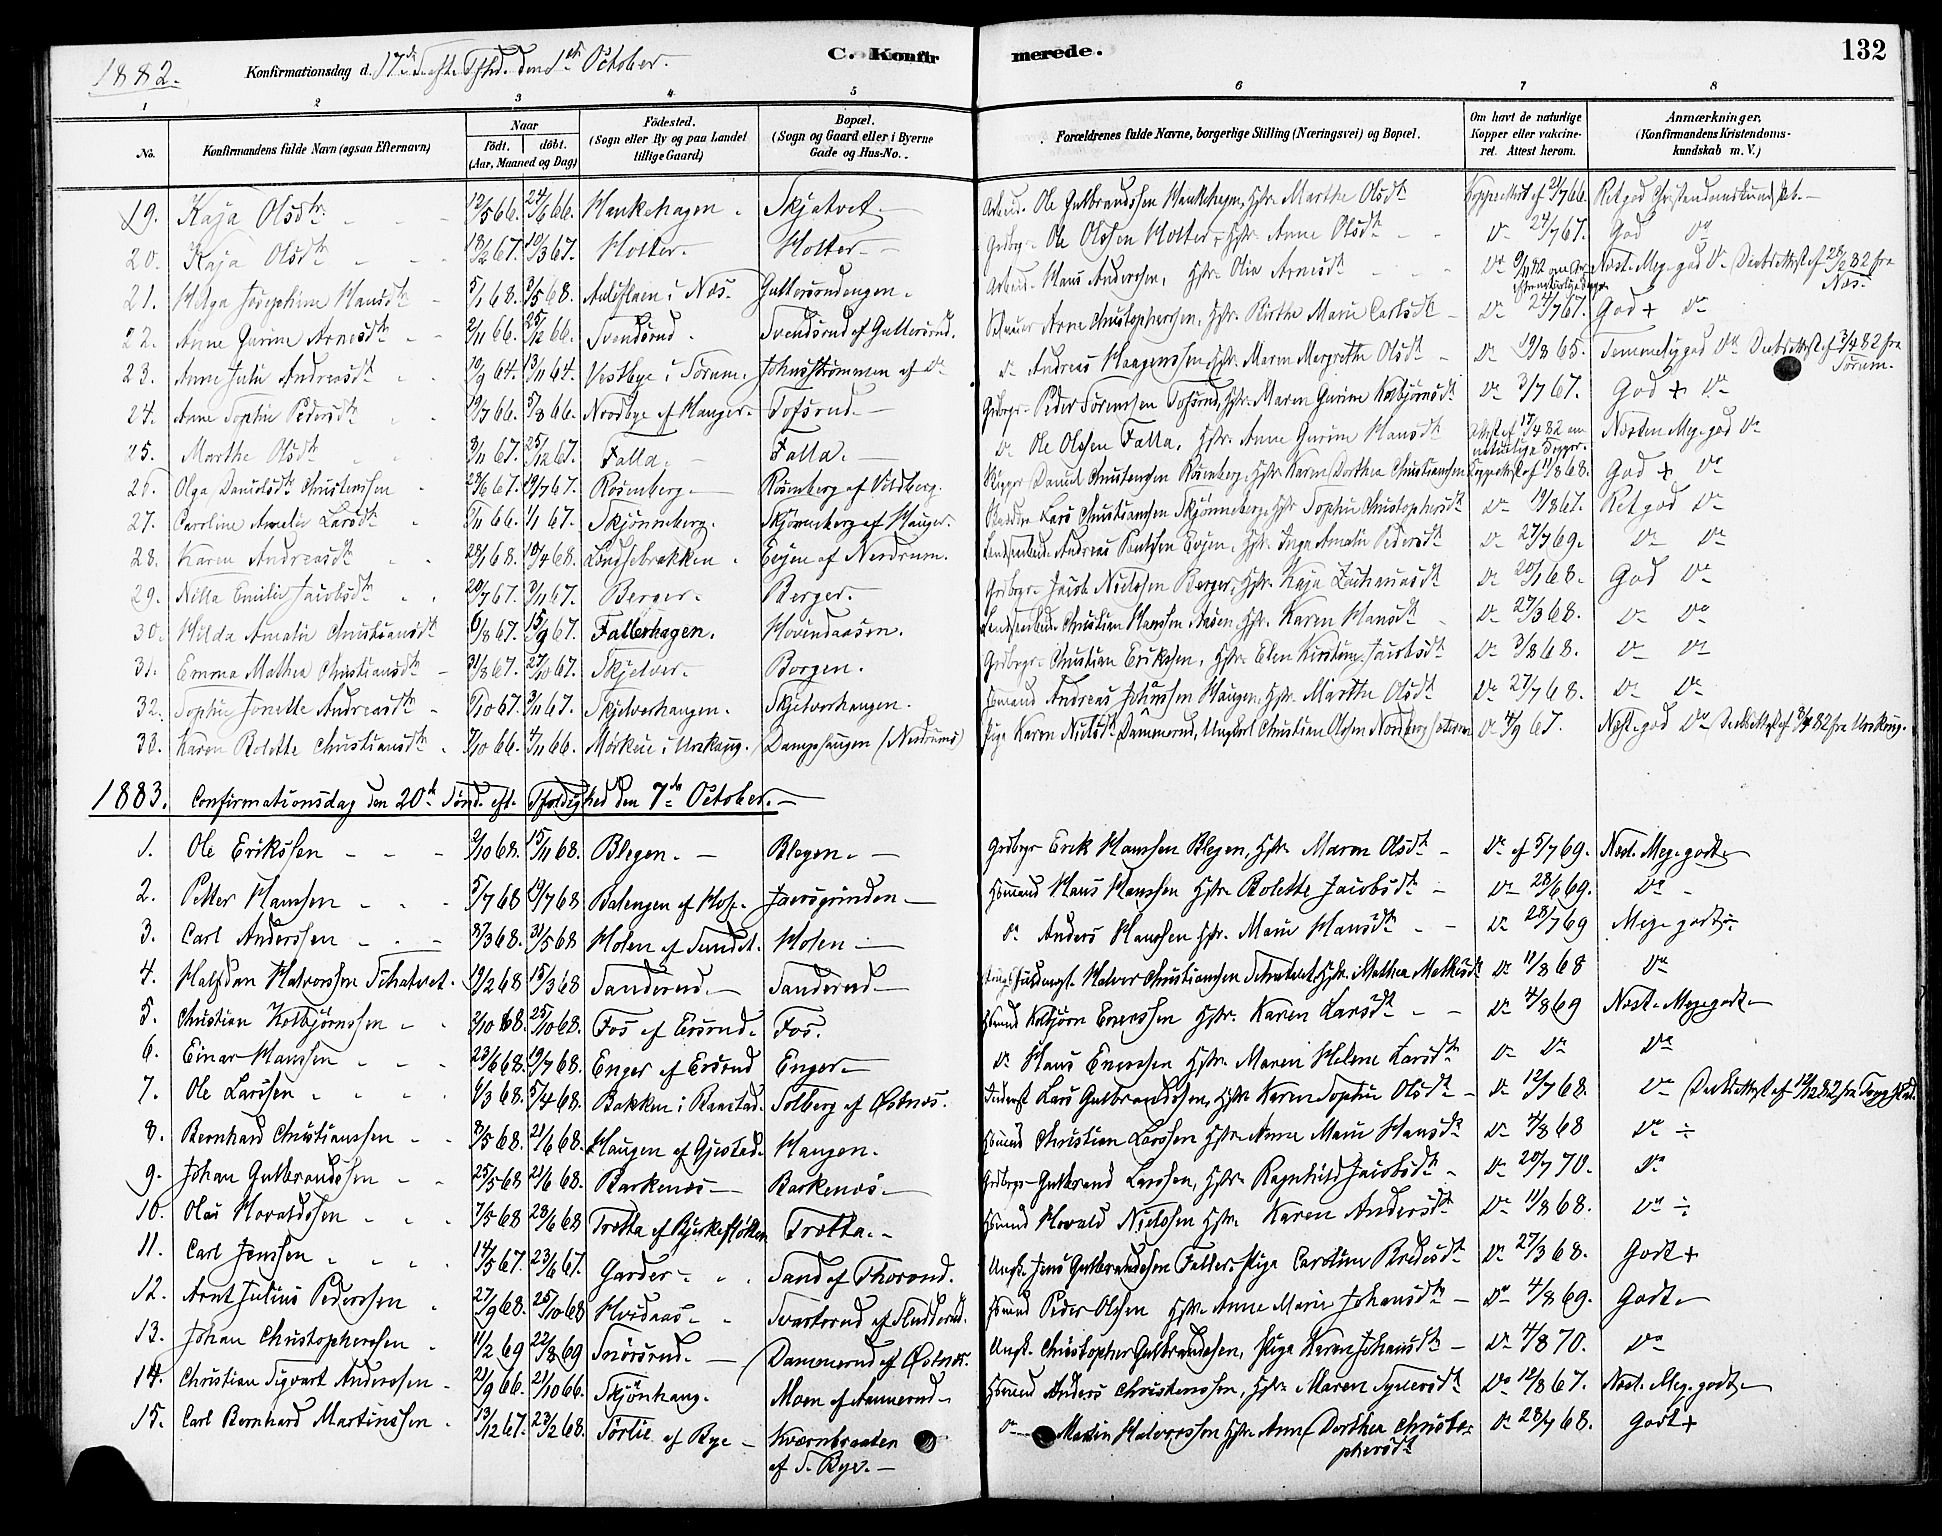 1882. Konfirmationsdag d. 17de S. eft. Tfhd. den 1ste October. C. Konfirmerede. 132
1 2 3 4 5 6 7 8
No. Konfirmandens fulde Navn (ogsaa Efternavn) Naar født. døbt. (Aar, Maaned og Dag) Fødested. (Sogn eller By og paa Landet tillige Gaard) Bopæl. (Sogn og Gaard eller i Byerne Gade og Hus-No. Forældrenes fulde Navne, borgerlige Stilling (Næringsvei) og Bopæl. Om havt de naturlige Kopper eller vakcineret. Attest herom. Anmærkninger. (Konfirmandens Kristendomskundskab m. V.)
19. Kaja Olsdtr. 12/5 66. 24/6 66. Haukehagen. Skjatvet. Arbeid. Ole Gulbrandssen Haukehagen, Hstr. Marthe Olsdtr Koppeattest af 21/7 66. Ret god Christendomskundskab.
20. Kaja Olsdtr 18/2 67. 10/3 67. Holter. Holter. Grdbrgr. Ole Olssen Holter, Hstr. Anne Olsdtr Do 24/7 67. God Do
21. Helga Josephine Hansdtr 5/1 68. 3/5 68. Aulislæn i Næs. Gullersrudengen. Arbeid. Hans Anderssen, Hstr. Olia Arnesdtr Næst. Meg. god Do Daabsattest af 28/2 82 fra Næs.
22. Anne Gurine Arnesdtr 2/11 66. 25/12 66. Svendsrud. Svendsrud af Gullersrud. Arne Christophersen, Hstr. Kirthe Marie Carlsdtr Do 24/7 67. God + Do
23. Anne Julie Andreasdtr 10/9 64. 13/11 64. Vestbye i Sørum. Johnsstrømmen af Do Do Andreas Haagenssen, Hstr. Maren Margrethe Olsdtr Do 19/8 65. Temmelig god Do Daabsattest af 3/4 82 fra Sørum.
24. Anne Sophie Pedersdtr 19/7 66. 5/8 66. Nordbye af Hauger. Tofsrud. Grdbrgr. Peder Sørenssen Tofsrud, Hstr. Maren Gurine Kolbjørnsdtr Do 3/7 67. God + Do
25. Marthe Olsdtr 8/11 67. 25/12 67. Falla. Falla. Do Ole Olssen Falla, Hstr. Anne Gurine Hansdtr Attest af 17/4 82 om naturlige Kopper. Næsten Meg. god Do
26. Olga Danielsdtr Christenssen 29/6 67. 19/7 67. Rosenberg. Rosenberg af Vildberg. Daniel Christensen Rosenberg, Hstr. Karen Dorthea Christiansen Koppeattest af 11/8 68. God + Do
27. Caroline Amalie Larsdtr 9/11 66. 1/1 67. Skjønneberg. Skjønneberg af Hauger. Lars Christianssen Skjønneberg, Hstr. Sophie Christophersdtr Do 19/8 67. Ret god Do
28. Karen Andreasdtr 28/1 68. 10/4 68. Løndsebrækken. Evjen af Nerdrum. Andreas Paulsen Evjen, Hstr. Inga Amalie Pedersdtr Do 27/7 69. Do Do
29. Nilla Emilie Jacobsdtr 20/7 67. 3/11 67. Berger. Berger. Grdbrgr. Jacob Nielssen Berger, Hstr. Kaja Zachariasdtr Do 20/1 68. God Do
30. Hilda Amalie Christiansdtr 6/8 67. 15/9 67. Fallerhagen. Hovindaasen. Christian Hanssen Aasen, Hstr. Karen Hansdtr Do 27/3 68. Do Do
31. Emma Mathea Christiansdtr 31/8 67. 27/10 67. Skjelver. Borgen. Grdbrgr. Christian Erikssen, Hstr. Elen Kirstine Jacobsdtr Do 3/8 68. Do Do
32. Sophie Jonette Andreasdtr 9/10 67. 3/11 67. Skjelverhaugen. Skjelverhaugen. Hsmand Andreas Johanssen Haugen, Hstr. Marthe Olsdtr Do 27/7 68. Do Do
33. Karen Bolette Christiansdtr 7/10 66. 4/11 66. Mørkue i Urskoug. Dampshaugen (Nerdrums) Pige Karen Nielsdtr Dammerud, Ungkarl Christian Olssen Nordberg Do 4/9 67. Næst. god Do Daabsattest af 8/4 82 fra Urskoug.
1883. Confirmationsdag den 20de Sønd. eft. Trefoldighed den 7de October.
1. Ole Erikssen 3/10 68. 15/11 68. Blegen. Blegen. Grdbrgr Erik Hanssen Blegen, Hstr. Maren Olsdtr Do af 5/7 69. Næst. Meg. godt
2. Petter Hanssen 5/7 68 19/7 68 Balengen af Hof. Jaersgrinden Hsmand Hans Hanssen Hstr. Bolette Jacobsdtr Do 28/6 69. Do
3. Carl Anderssen 8/3 68. 31/5 68 Holen af Sundet. Holen Do Anders Hanssen Hstr. Marie Hansdtr Do 28/7 69 Meg. godt
4. Halfdan Halvorssen Tchatvet. 19/2 68 15/3 68 Sanderud. Sanderud Halvor Christianssen Tchatvet, Hstr. Mathea Mathisdtr Do 11/8 68 Do
5. Christian Kolbjørnssen 3/10 68. 25/10 68. Fos af Ersrud. Fos. Hsmand Kolbjørn Enerssen Hstr. Karen Larsdtr Do 4/8 69 Næst. Meg. godt
6. Einar Hanssen 23/6 68. 19/7 68. Enger af Ersrud Enger Do Hans Enerssen Hstr. Maren Helene Larsdtr Do Do Do
7. Ole Larssen 6/3 68. 5/4 68. Bakken i Baastad. Solberg af Østnæs. Inderst Lars Gulbrandssen, Hstr. Karen Sophie Olsdtr Do 12/7 68. Do Daabsattest af 12/12 82 fra
8. Bernhard Christianssen 8/5 68. 21/6 68. Haugen af Gjestad. Haugen. Hsmand Christian Larssen Hstr. Anne Marie Hansdtr Do 4/8 68 Do ÷
9. Johan Gulbrandssen 25/5 68 21/6 68. Barkenæs Barkenæs. Grdbrgr Gulbrand Larssen, Hstr. Ragnhild Jacobsdtr Do 20/7 70. Do
10. Olaus Hovaldssen 7/5 68 28/6 68 Trætta af Bjerkefløtten Trætta. Hsmand Hovald Nielssen Hstr. Karen Andersdtr Do 11/8 68. Do ÷
11. Carl Jenssen 14/5 67. 23/6 67. Garder. Sand af Thorsrud. Ungk. Jens Gulbrandssen Faller. Pige Caroline Bredesdtr Do 27/3 68. Godt +
12. Arnt Julius Pederssen 27/9 68. 25/10 68 Hvidaas Svarterud af Fludderud. Hsmand Peder Olssen Hstr. Anne Marie Johansdtr Do 4/8 69. Godt
13. Johan Christopherssen 11/2 69 22/8 69 Snørsrud. Dammerud af Østnæs. Ungk. Christopher Gulbrandssen, Pige Karen Johansdtr Do 4/8 70. Do
14. Christian Sigvart Anderssen 21/9 66. 21/10 66. Skjønhaug. Moen af Aannerud Hsmand Anders Christenssen, Hstr. Maren Syversdtr Do 12/8 67. Næst. Meg. godt
15. Carl Bernhard Martinssen 13/12 67. 23/2 68. Sørlie af Bye Kværnbraaten af S. Bye. Do Martin Halvorssen Hstr. Anne Dorthea Christophersdtr Do 28/7 68. Godt +